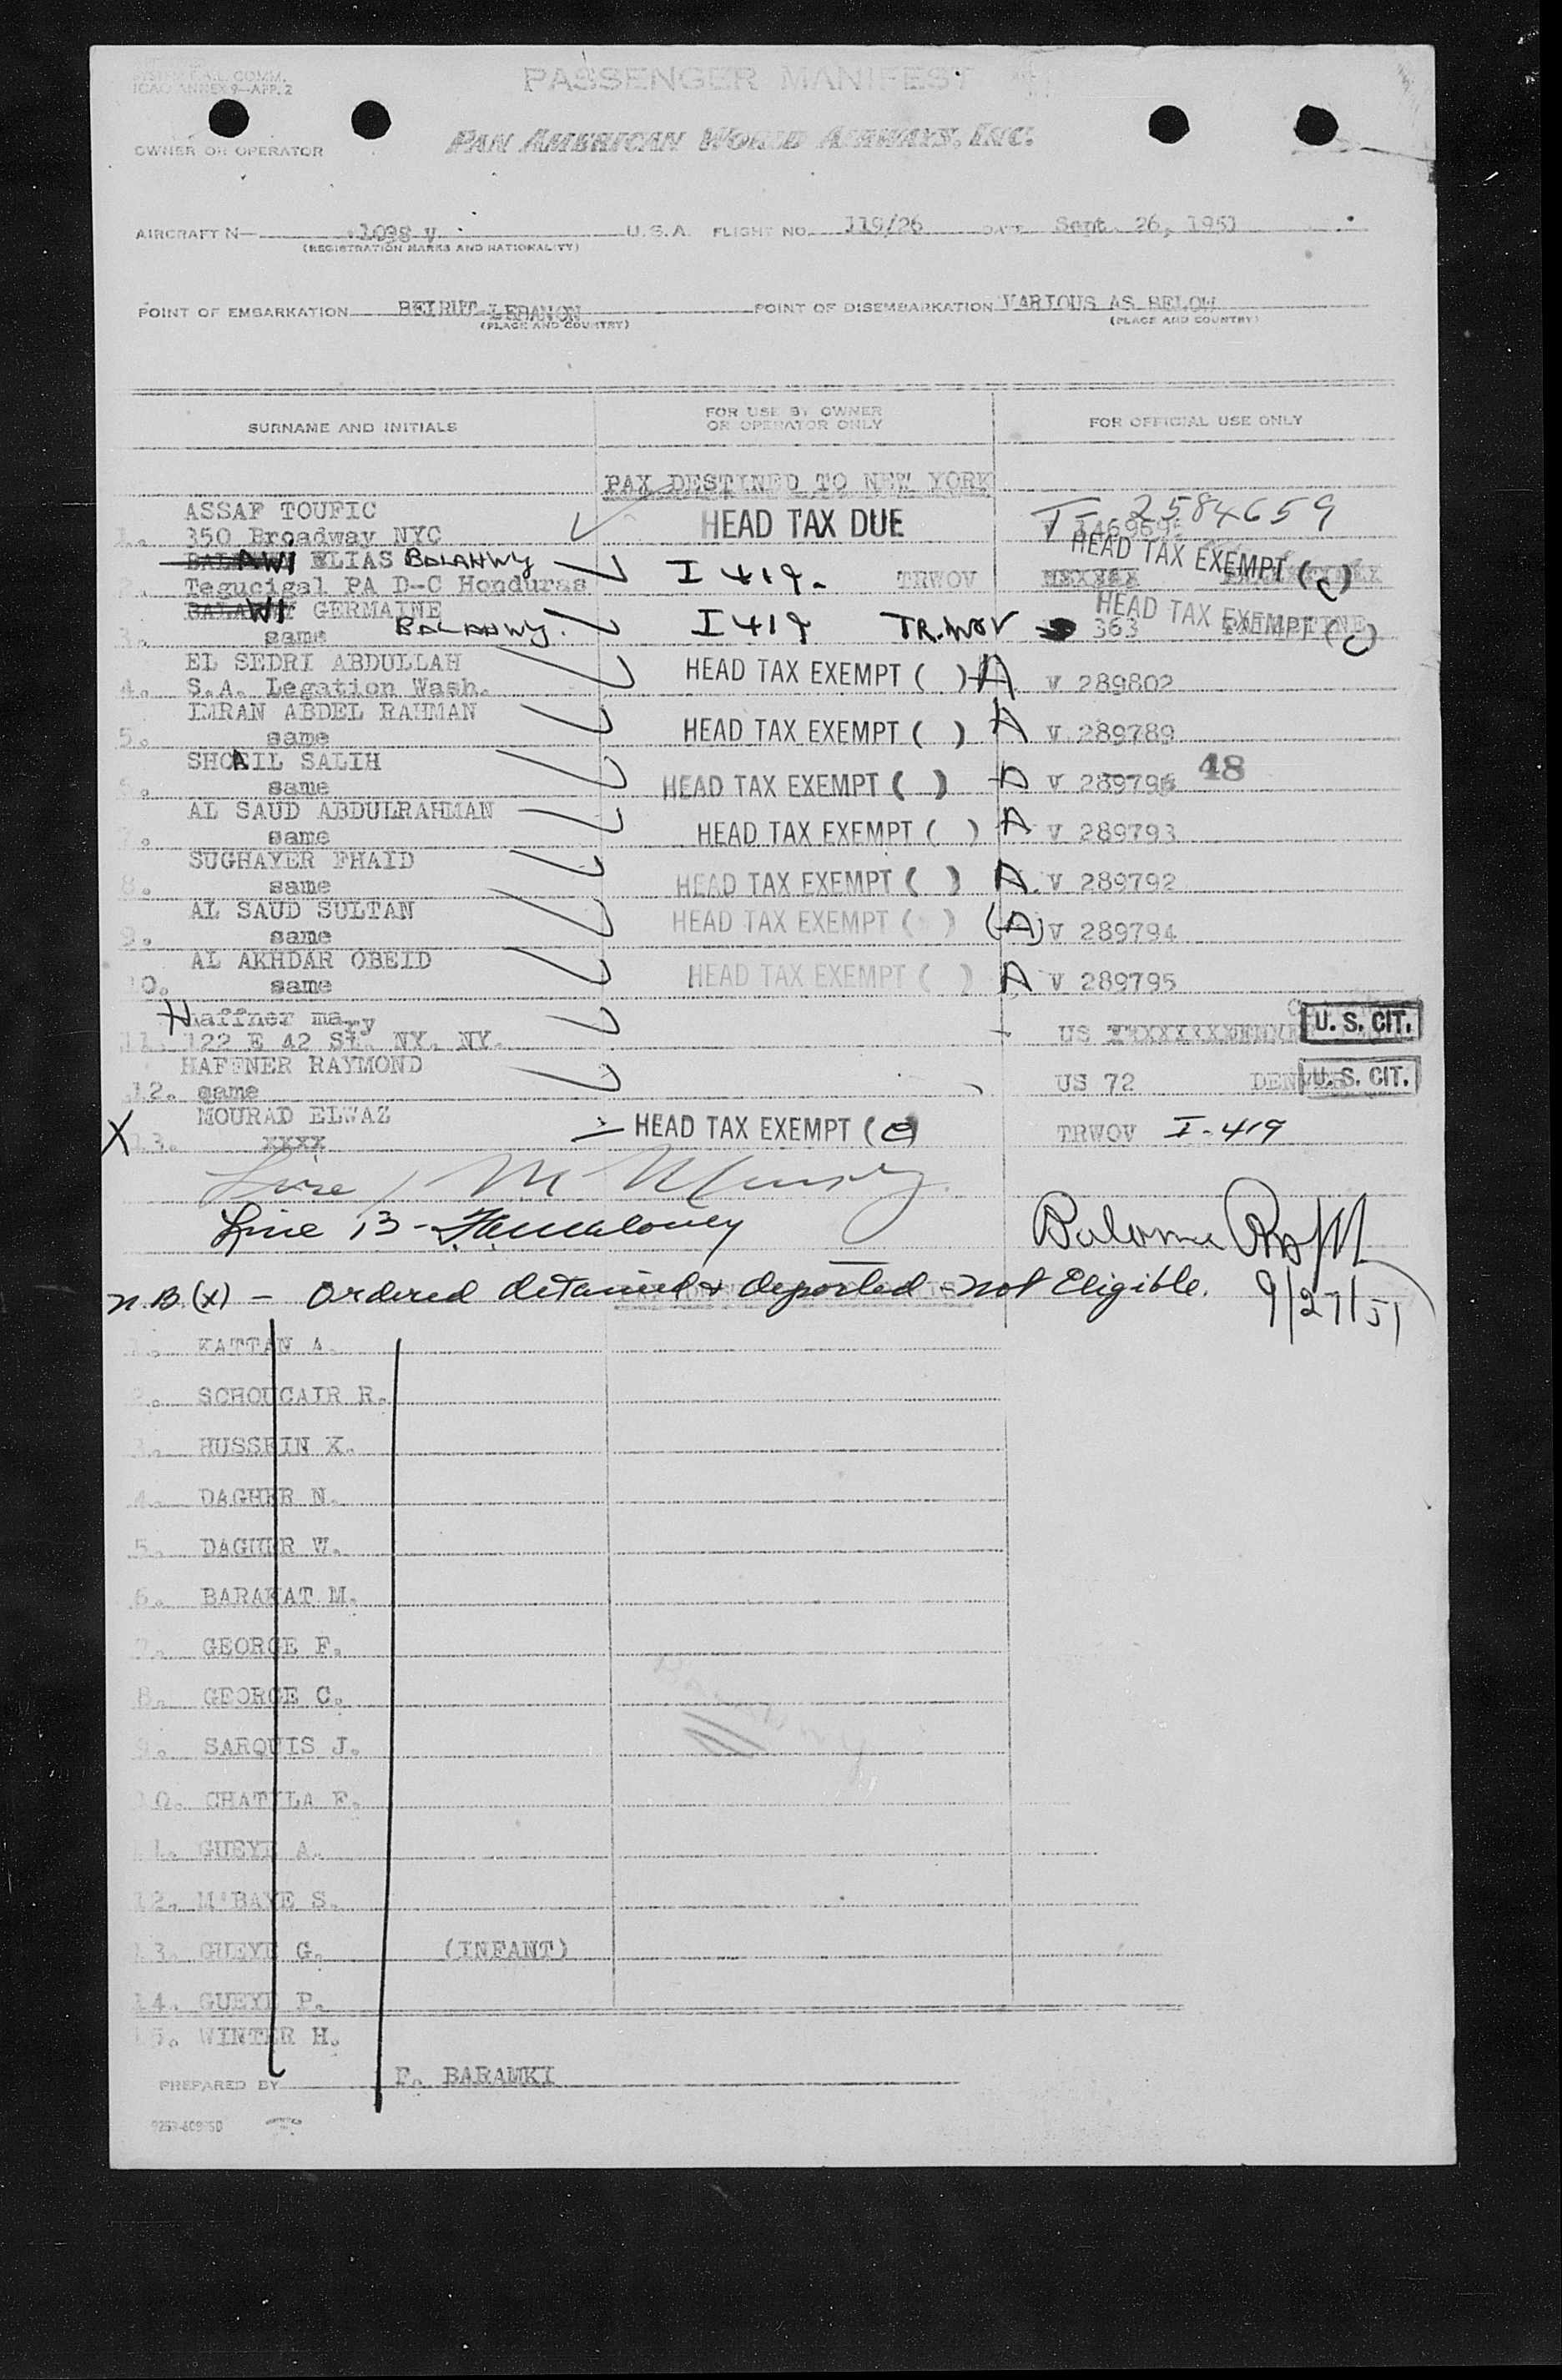 SYSTEM F.A.L. COMM.
ICAO ANNEX 9—APP. 2
PASSENGER MANIFEST
OWNER OR OPERATOR
PAN AMERICAN WORLD AIRWAYS, INC.
AIRCRAFT N— 1038 V U.S.A. FLIGHT NO. 119/26 DATE Sept. 26, 1951
(REGISTRATION MARKS AND NATIONALITY)
POINT OF EMBARKATION BEIRUT-LEBANON POINT OF DISEMBARKATION VARIOUS AS BELOW
(PLACE AND COUNTRY) (PLACE AND COUNTRY)
SURNAME AND INITIALS FOR USE BY OWNER OR OPERATOR ONLY FOR OFFICIAL USE ONLY
PAX DESTINED TO NEW YORK
ASSAF TOUFIC T- 2584659
1. 350 Broadway NYC HEAD TAX DUE V
ELIAS BALAHWY HEAD TAX EXEMPT (C)
2. Tegucigal PA D-C Honduras I 419. TRWOV
GERMAINE HEAD TAX EXEMPT (C)
3. same BALAHWY. I 419 TR.WOV 363
EL SEDRI ABDULLAH
4. S.A. Legation Wash. HEAD TAX EXEMPT ( ) A V 289802
IMRAN ABDEL RAHMAN
5. same HEAD TAX EXEMPT ( ) A V 289789
SHOAIL SALIH 48
6. same HEAD TAX EXEMPT ( ) A V 289796
AL SAUD ABDULRAHMAN
7. same HEAD TAX EXEMPT ( ) A V 289793
SUGHAYER FHAID
8. same HEAD TAX EXEMPT ( ) A V 289792
AL SAUD SULTAN
9. same HEAD TAX EXEMPT ( ) (A) V 289794
AL AKHDAR OBEID
10. same HEAD TAX EXEMPT ( ) A V 289795
Haffner mary
11. 122 E 42 St. NY. NY. US U. S. CIT.
HAFFNER RAYMOND
12. same US 72 U. S. CIT.
MOURAD ELWAZ
X 13. xxxx HEAD TAX EXEMPT (C) TRWOV I-419
Line 13 -
n.B.(x) - Ordered detained & deported - not Eligible. 9/27/51
1. KATTAN A.
2. SCHOUCAIR R.
3. HUSSEIN K.
4. DAGHER N.
5. DAGHER W.
6. BARAKAT M.
7. GEORGE F.
8. GEORGE C.
9. SARQUIS J.
10. CHATILA F.
11. GUEYE A.
12. M'BAYE S.
13. GUEYE G. (INFANT)
14. GUEYE P.
15. WINTER H.
PREPARED BY F. BARAMKI